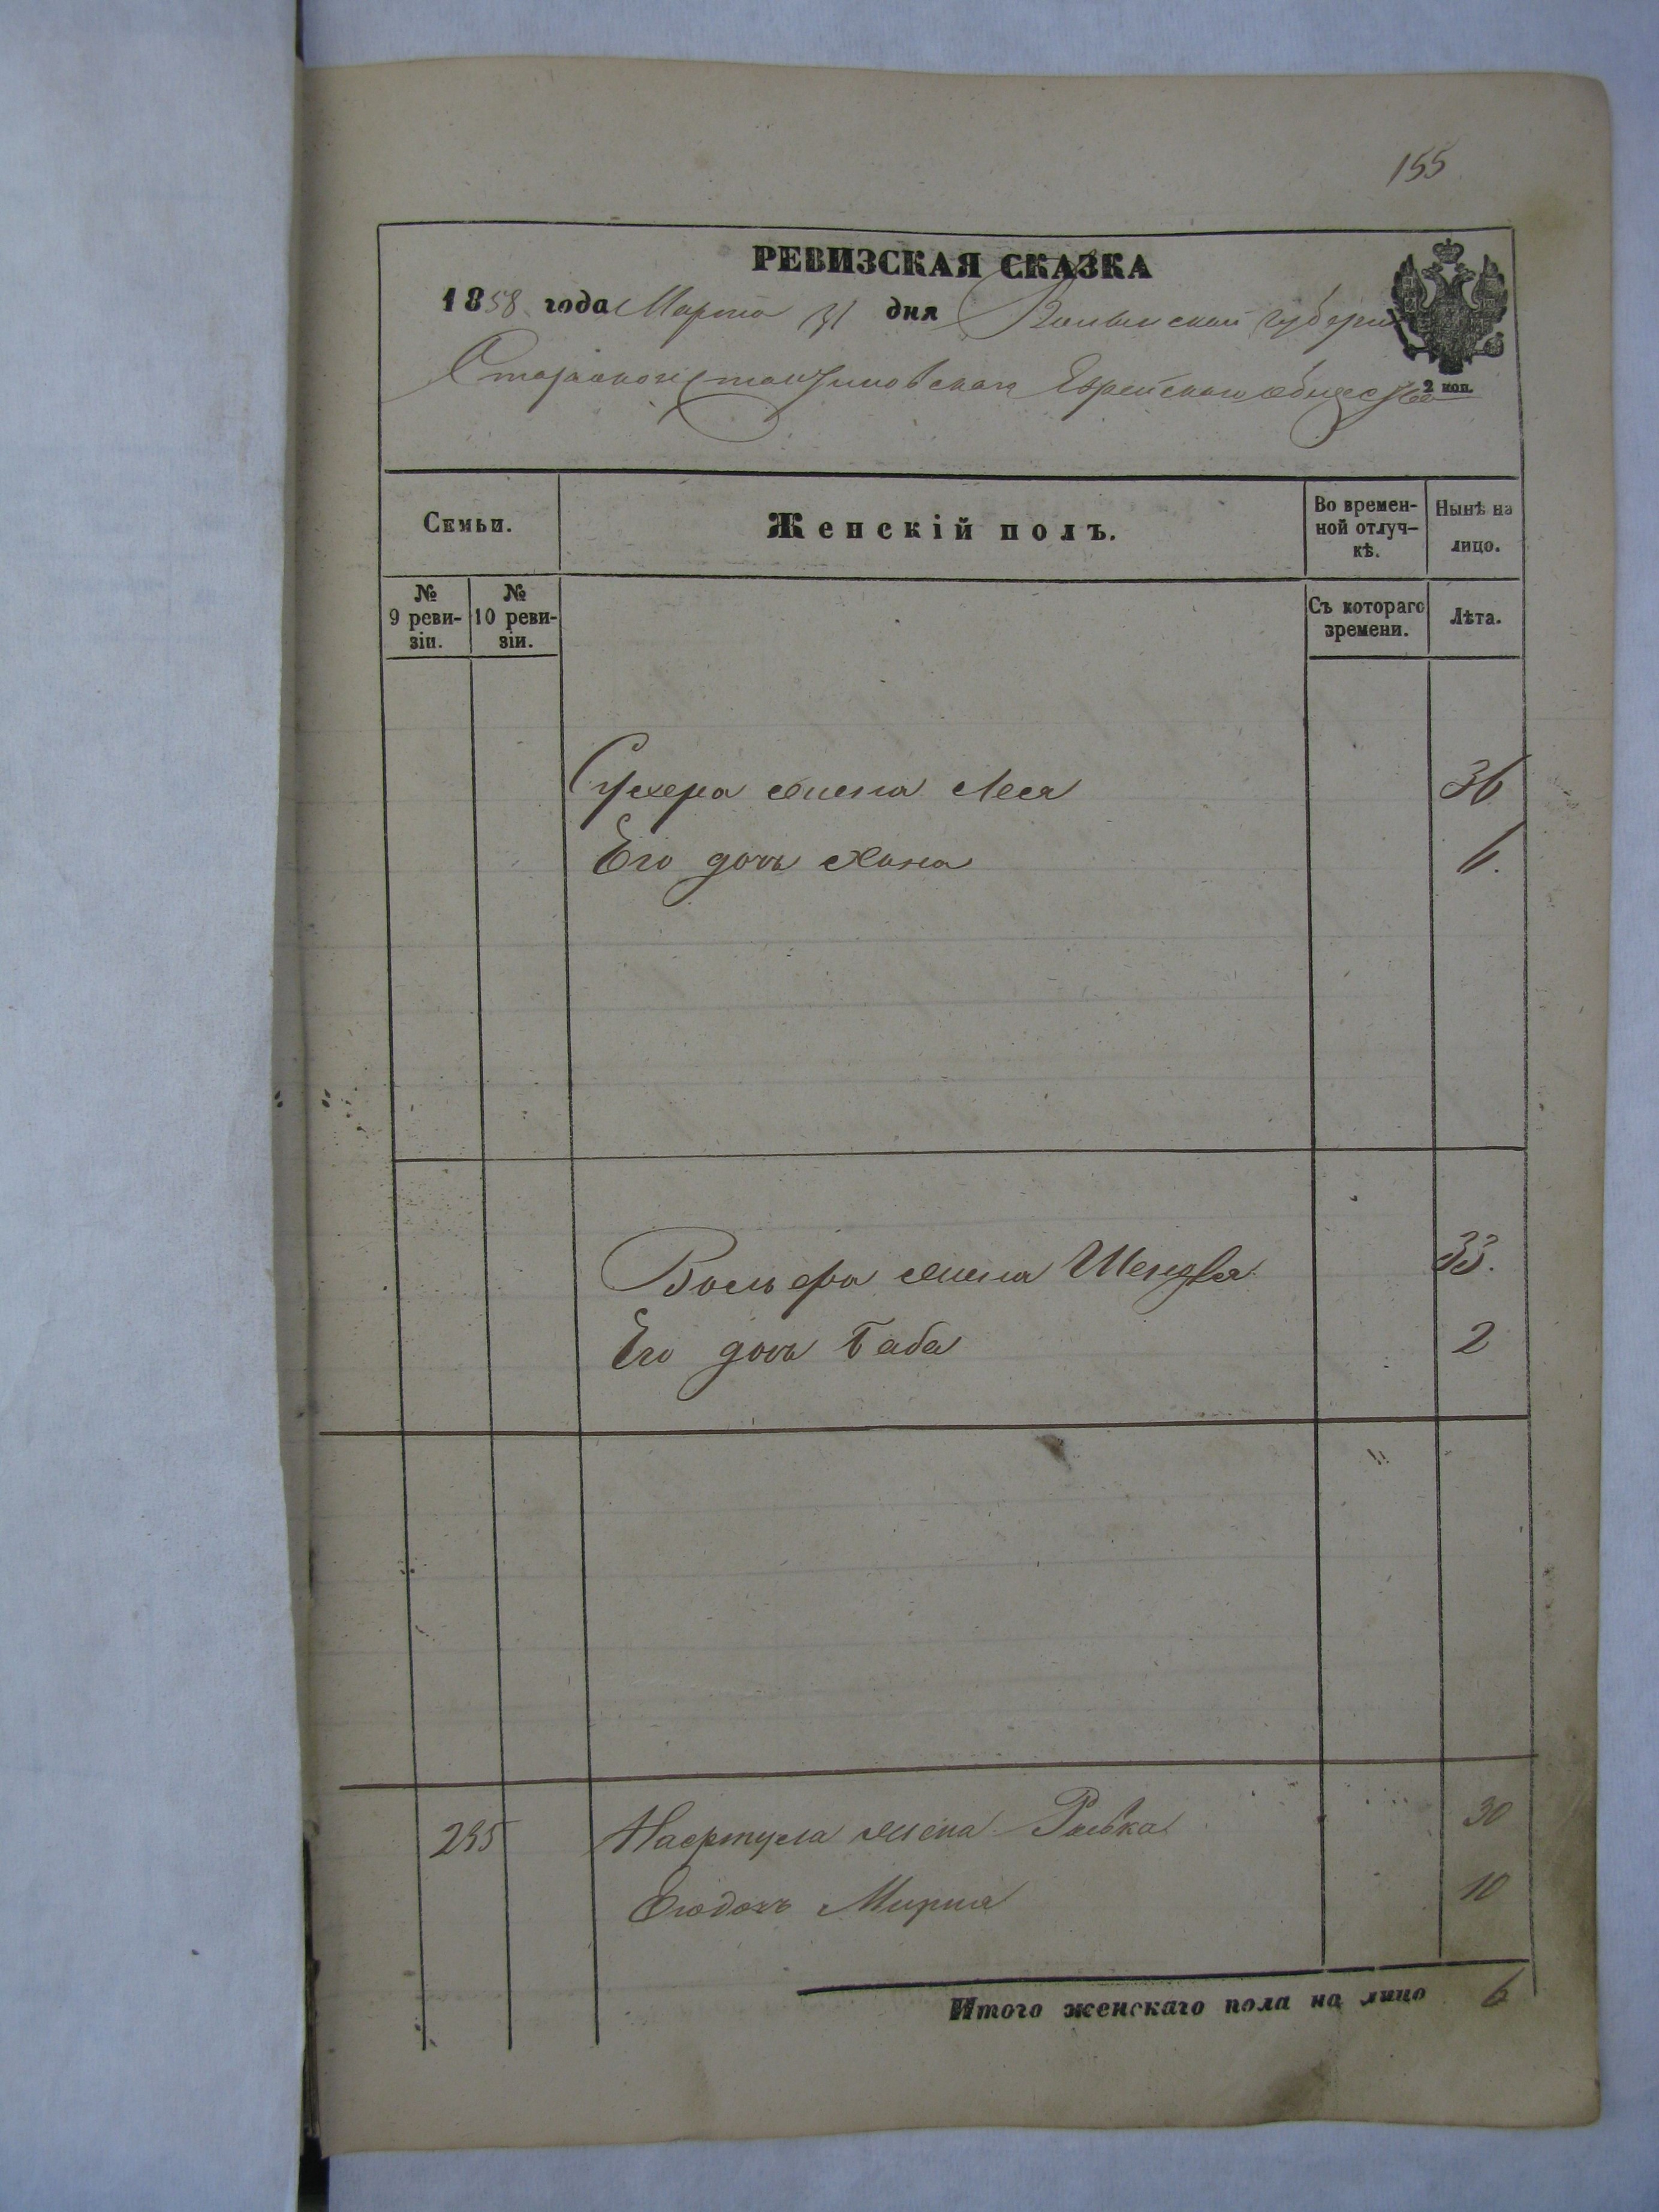 155
РЕВИЗСКАЯ СКАЗКА
1858 года Марта 31 дня Волынской губернии
Староконстантиновскаго Еврейскаго общества
2 коп.
Семьи.
Женскій полъ.
Во времен-
ной отлуч-
кѣ.
Нынѣ на
лицо.
№
9 реви-
зіи.
№
10 реви-
зіи.
Съ котораго
времени.
Лѣта.
Сухера жена Лея 36
Его дочь Хана 6.
Вольфа жена Шендля 33.
Его дочь Баба 2
295 Нафтула жена Ривка 30
Его дочь Мирля 10
Итого женскаго пола на лицо 6